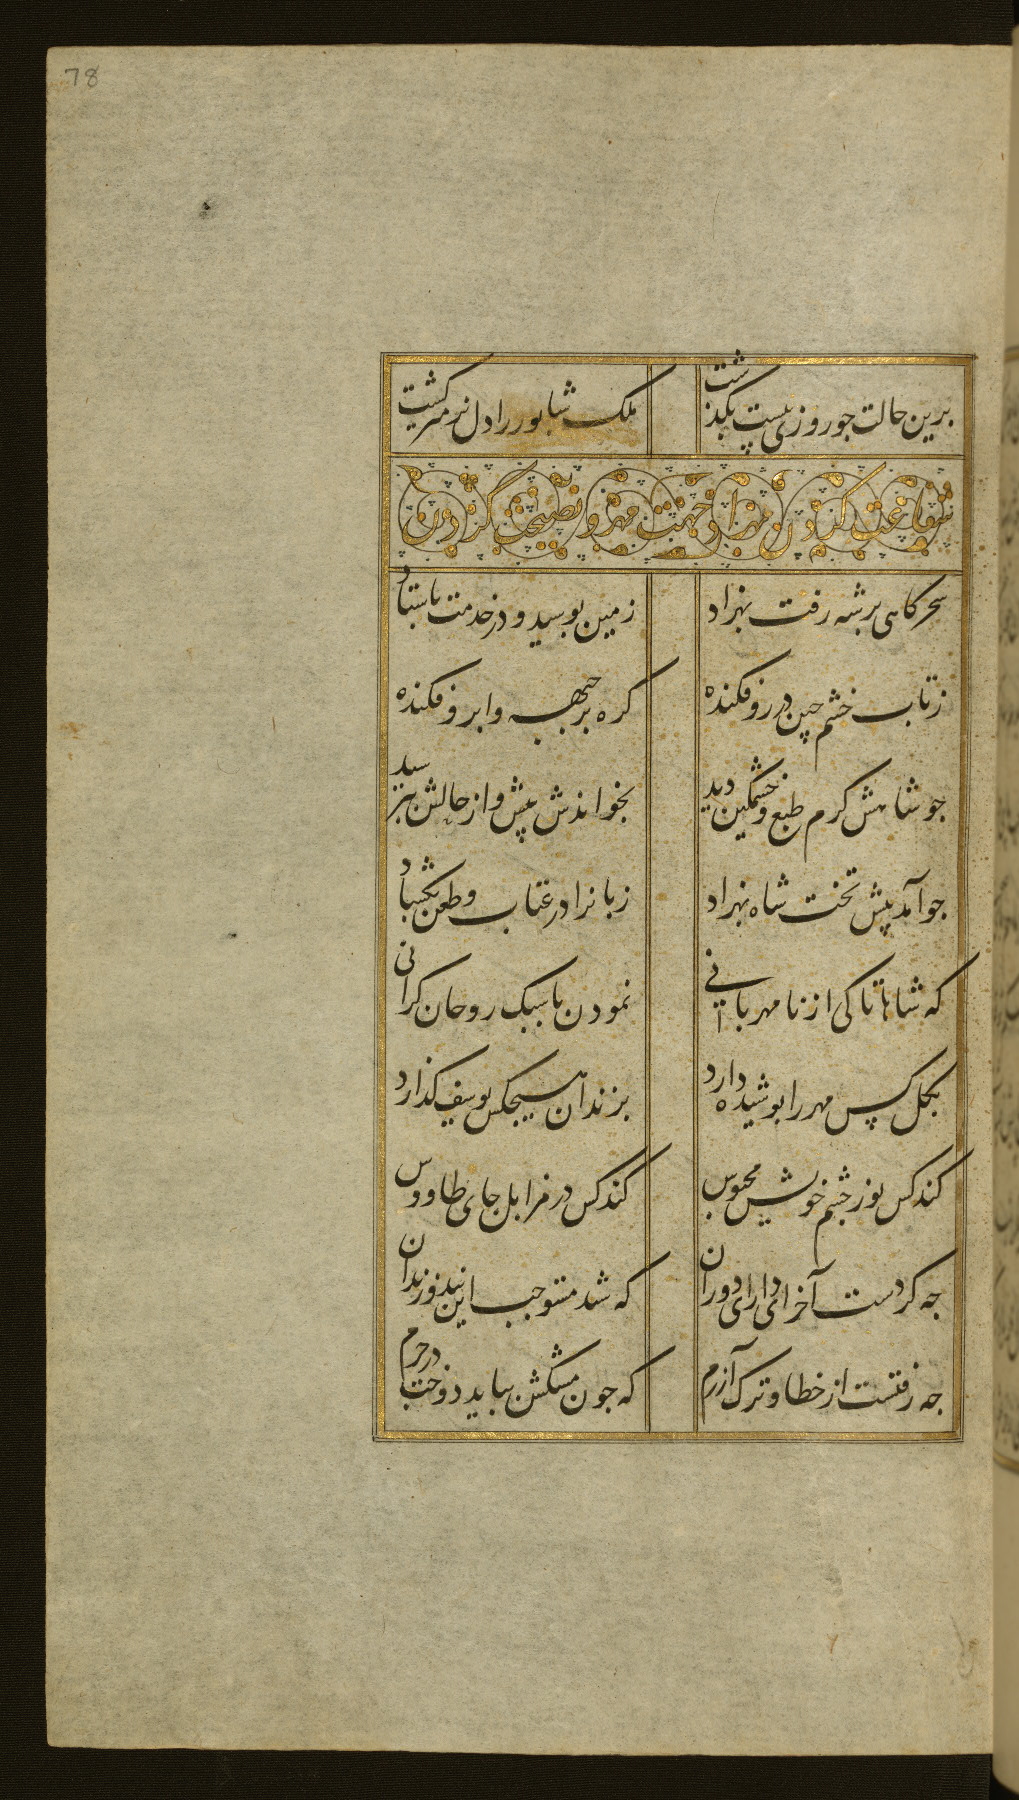 78
برین حالت جو روزی بیست بگذشت
ملک شابور را دل نرم‌تر گشت
شفاعت کردن بهزاد جهت مهر و نصیحت کردن
سحرکاهی بر شه رفت بهزاد
زمین بوسید و در خدمت باستاد
ز تاب خشم چین در رو فکنده
کره بر جبهه و ابرو فکنده
جو شاهش کرم طبع و خشمکین دید
بخواندش پیش و از حالش ببرسید
جو آمد پیش تخت شاه بهزاد
زبانرا در عتاب و طعن بکشاد
که شاها تا کی از نامهربانی
نمودن با سبک روحان کرانی
بکل کس مهر را بوشیده دارد
بزندان هیچکس یوسف کذارد
کند کس نور جشم خویش محبوس
کند کس در مزابل جای طاووس
جه کردست آخر ای دارای دوران
که شد مستوجب این بند و زندان
جه رفتست از خطا و ترک آزرم
که جون مشکش بباید دوخت در جرم